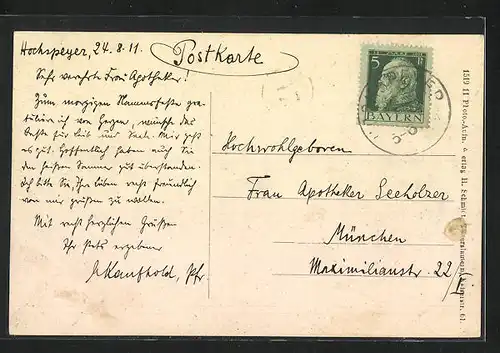 Hochspeyer, 24.8.11.
Postkarte
Sehr verehrte Frau Apotheker!
Zum morgigen Namensfeste gra-
tuliere ich von Herzen, wünsche das
Beste für Leib und Seele. Mir geht
es gut. Hoffentlich haben auch Sie
den heißen Sommer gut überstanden.
Ich bitte Sie, Ihr lieben recht freundlich
von mir grüßen zu wollen.
Mit recht herzlichen Grüßen
Ihr stets ergebener
Kaufhold, Pfr.
5
BAYERN
5-6
Hochwohlgeboren
Frau Apotheker Seeholzer
München
Maximilianstr. 22/I
1519 11 Photo. H. Schmidt